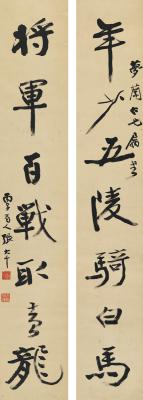 年少五陵騎白馬
夢蘭仁兄屬書
將軍百戰取龍
蜀人張大千